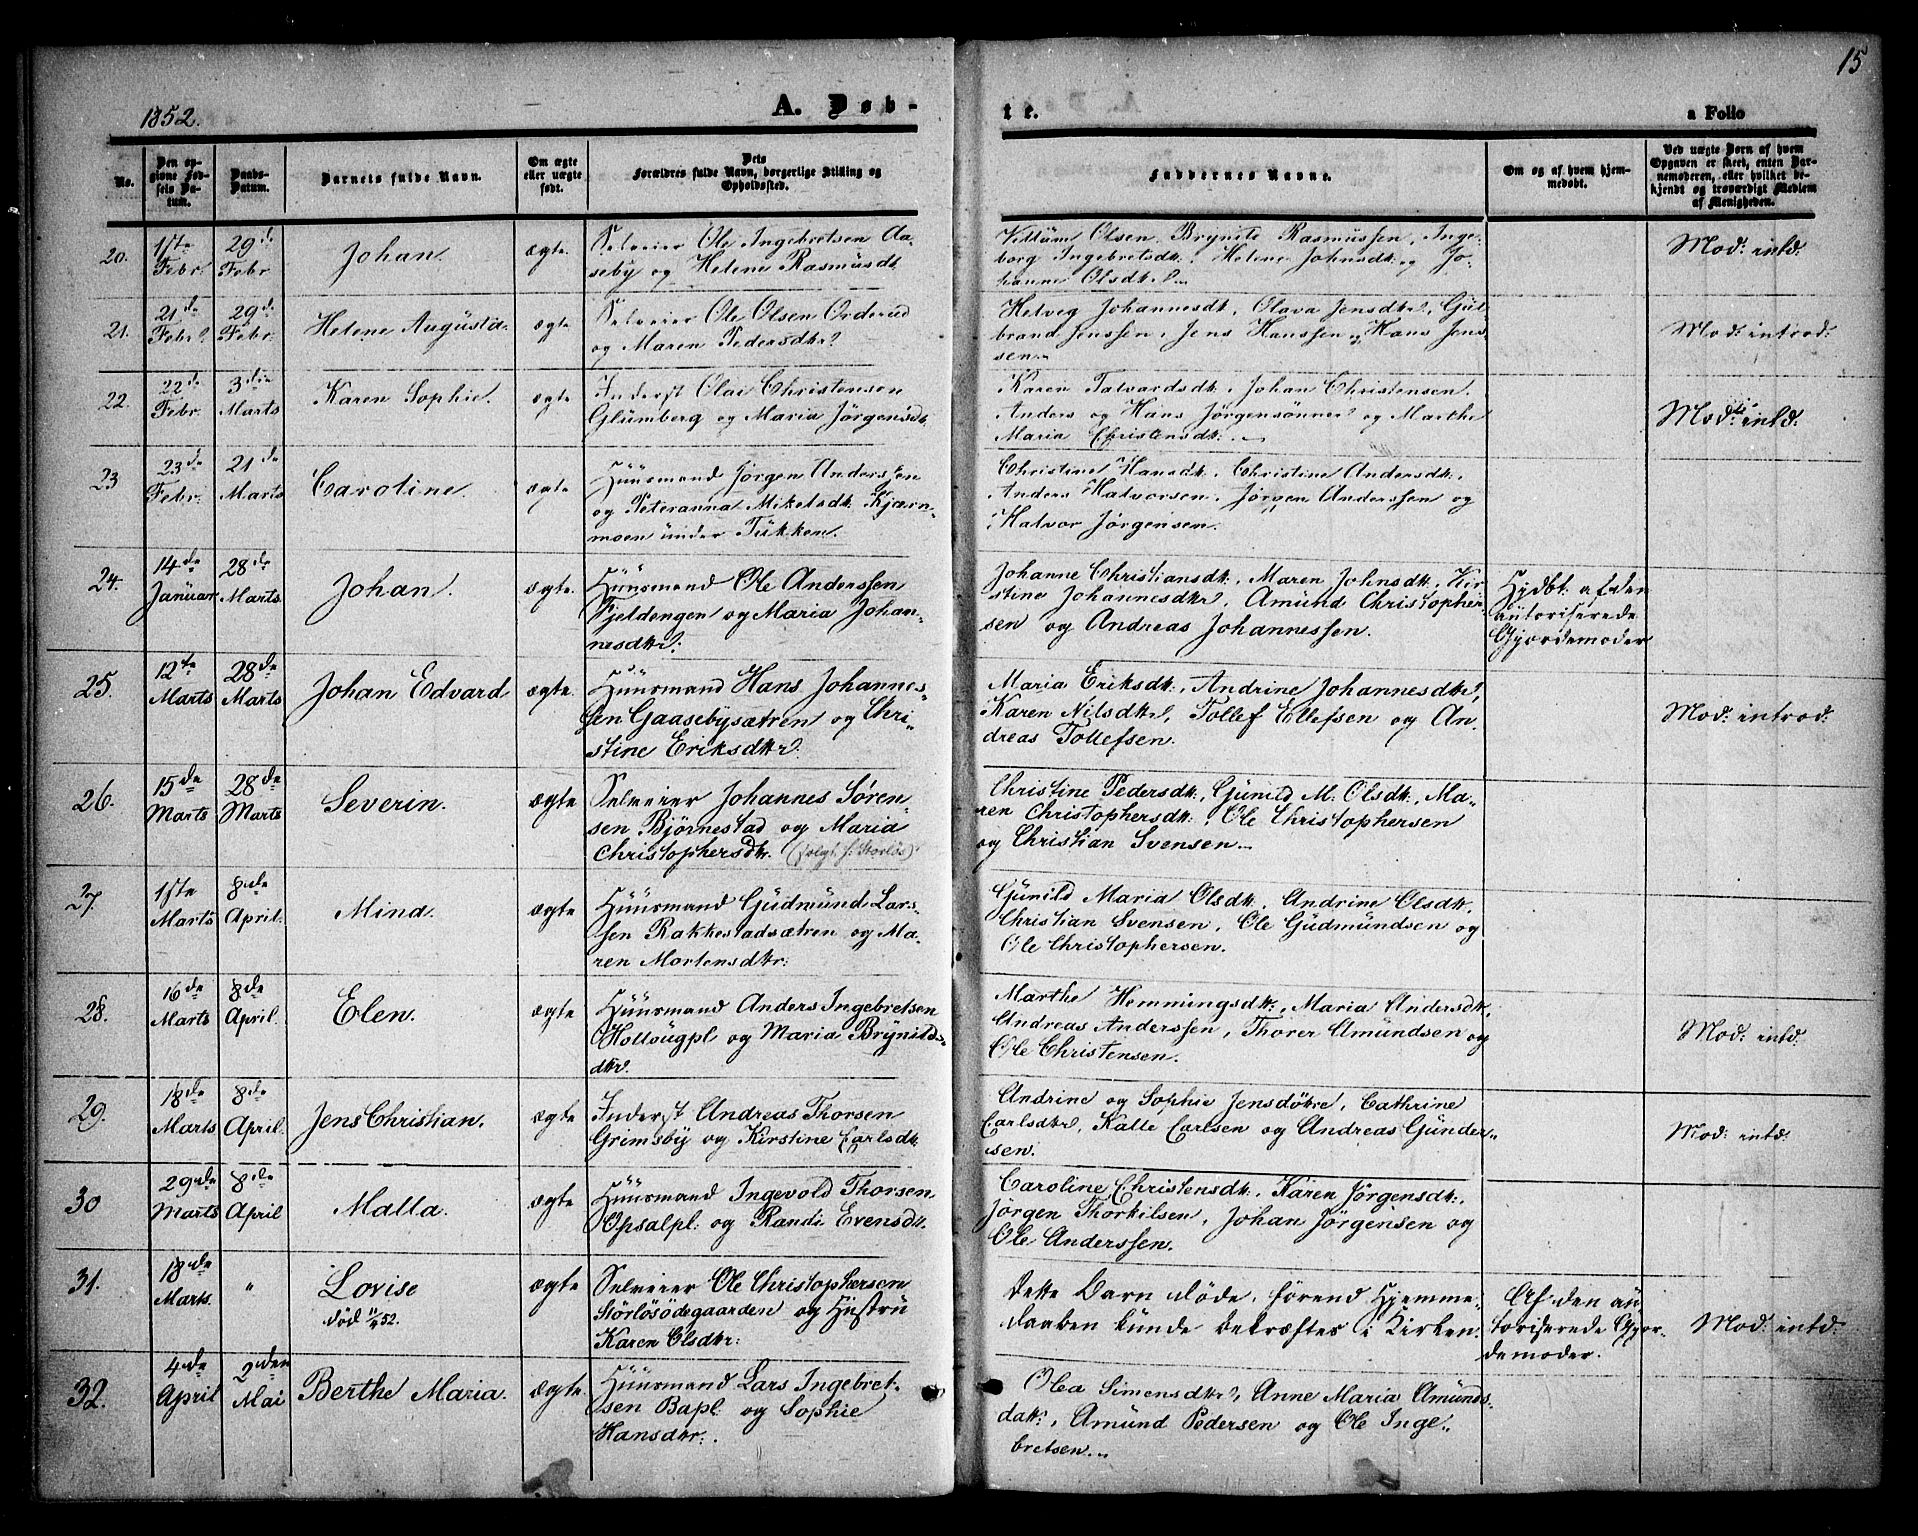 15
1852.
A. Døb-
te.
a Folio
No.
Den op-
givne Fød-
sels Da-
tum.
Daabs-
Datum.
Barnets fulde Navn.
Om ægte
eller uægte
født.
Dets
Forældres fulde Navn, borgerlige Stilling og
Opholdssted.
Faddernes Navne.
Om og af hvem hjem-
medøbt.
Ved uægte Børn af hvem
Opgaven er skeet, enten Bar-
nemoderen, eller hvilket be-
kjendt og troværdigt Medlem
af Menigheden.
20.
1ste
Febr.
29de
Febr
Johan
ægte
Selveier Ole Ingebretsen Aa-
seby og Helene Rasmusdt
Olsen, Brynild Rasmussen, Inge-
borg Ingebretsdt:, Helene Johnsdt: og Jo-
hanne Olsdtr.
Mod: intd:
21.
21de
Febr.
29de
Febr.
Helene Augusta
ægte
Selveier Ole Olsen Orderud
og Maren Pedersdtr.
Helveg Johannesdt:, Olava Jensdtr, Gul-
brand Jenssen, Jens Hanssen og Hans Jens-
sen.
Mod: introd:
22.
22de
Febr.
3die
Marts
Karen Sophie.
ægte
Inderst Olai Christensen
Glumberg og Maria Jørgensdt.
Karen Talvardsdt:, Johan Christensen,
Anders og Hans Jørgensønner og Marthe
Maria Christensdt:
Mod: intd:
23
23de
Febr:
21de
Marts
Caroline.
ægte
Huusmand Jørgen Anderssen
og Peteranna Mikelsdt: Kjærn-
moen under Tukken.
Christine Hansdt:, Christine Andersdt:,
Anders Halvorsen, Jørgen Anderssen og
Halvor Jørgensen.
24.
14de
Januar
28de
Marts
Johan.
ægte.
Huusmand Ole Anderssen
Fjeldengen og Maria Johan-
nesdtr.
Johanne Christiansdt:, Maren Johnsdt:, Kir-
stine Johannesdtr, Amund Christopher-
sen og Andreas Johannessen.
Hjdbt: af den
autoriserede
Gjordemoder
25.
12te
Marts
28de
Marts
Johan Edvard
ægte.
Huusmand Hans Johannes-
sen Gaasebysætren og Chri-
stine Eriksdtr.
Maria Eriksdt:, Andrine Johannesdtr,
Karen Nilsdtr, Tollef Ellefsen og An-
dreas Tollefsen.
Mod: introd:
26.
15de
Marts
28de
Marts
Severin.
ægte
Selveier Johannes Søren-
sen Bjørnestad og Maria
Christophersdtr.
Christine Pedersdt:, Gunild M. Olsdt:, Ma-
ren Christophersdt:, Ole Christophersen
og Christian Svensen.
27.
1ste
Marts
8de
April.
Mina.
ægte
Huusmand Gudmund Lars-
sen Rakkestadsætren og Ma-
ren Mortensdtr:
Gunild Maria Olsdt:, Andrine Olsdtr,
Christian Svensen, Ole Gudmundsen og
Ole Christophersen.
28.
16de
Marts
8de
April.
Elen.
ægte
Huusmand Anders Ingebretsen
Hollsugpl og Maria Brynilds-
dtr.
Marthe Hemmingsdt:, Maria Andersdt:,
Andreas Anderssen, Thorer Amundsen og
Ole Christensen.
Mod: intd:
29.
18de
Marts
8de
April.
Jens Christian.
ægte
Inderst Andreas Thorsen
Grimsby og Kirstine Carlsdt:
Andrine og Sophie Jensdøtre, Cathrine
Carlsdtr, Kalle Carlsen og Andreas Gunder-
sen.
Mod: intd:
30
29de
Marts
8de
April
Malla.
ægte
Huusmand Ingevold Thorsen
Opsalpl: og Randi Evensdt:
Caroline Christensdt:, Karen Jørgensdt:,
Jørgen Thorkilsen, Johan Jørgensen og
Ole Anderssen.
31.
18de
Marts.
"
Lovise
død 11/4 52.
ægte
Selveier Ole Christophersen
Størløsødegaarden og Hustru
Karen Olsdtr:
Dette Barn døde, førend Hjemme-
daaben kunde bekræftes i Kirken.
Af den au-
toriserede Gjor-
demoder.
Mod: intd:
32.
4de
April
2den
Mai
Berthe Maria.
ægte.
Huusmand Lars Ingebret-
sen Bapl: og Sophie
Hansdtr:
Olea Simensdtr, Anne Maria Amunds-
datt:, Amund Pedersen og Ole Inge-
bretsen.